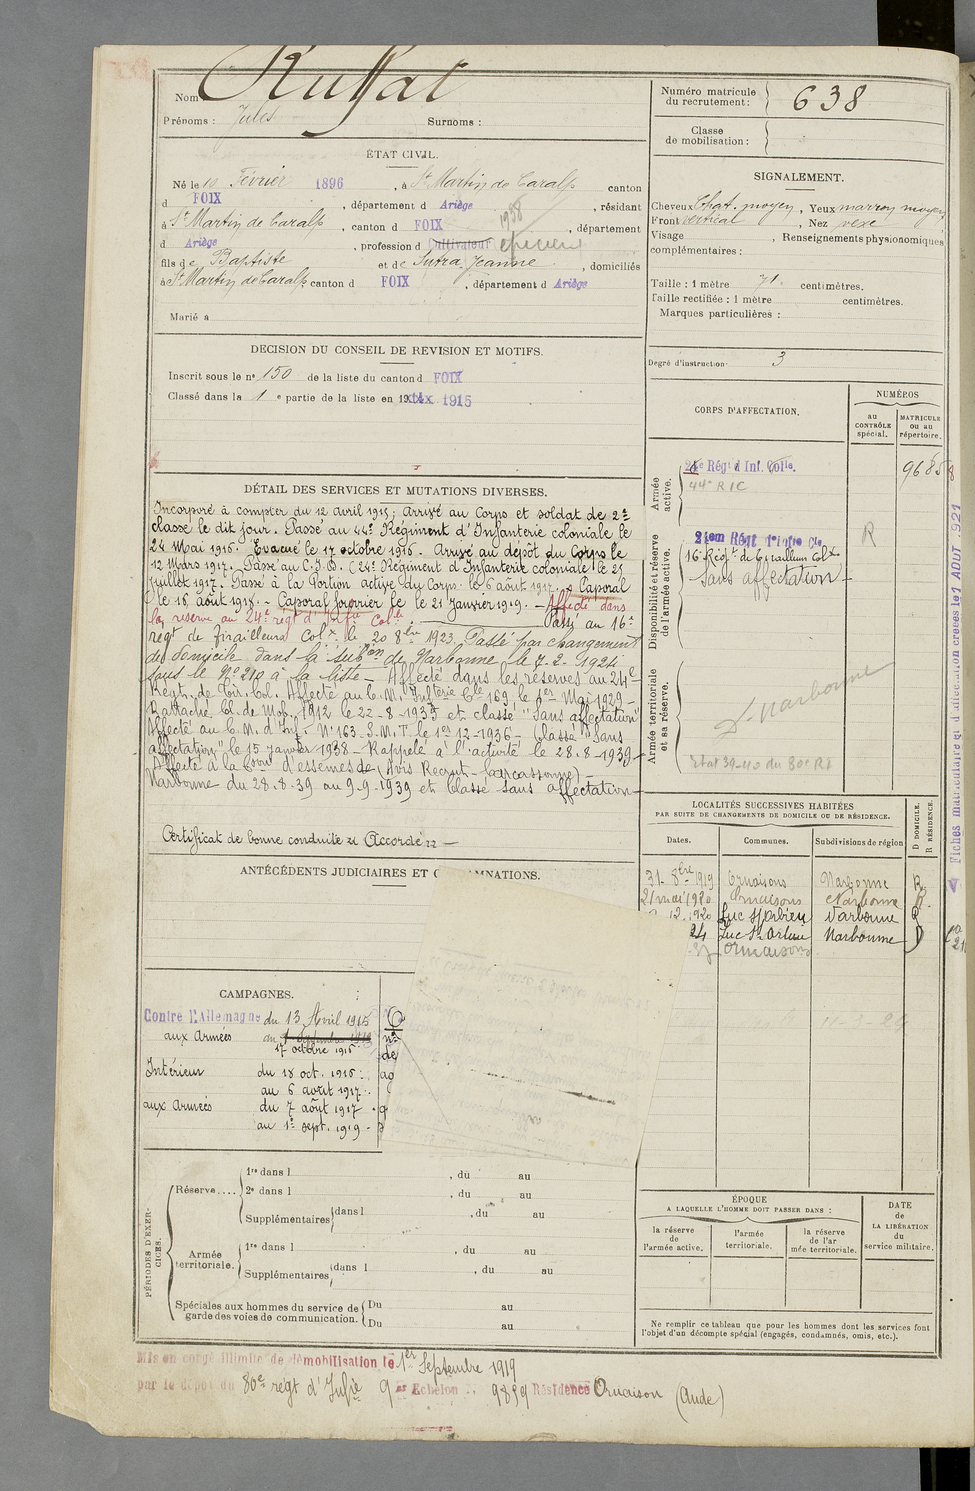 Nom Ruffat
Prénoms : Jules Surnoms :
Numéro matricule du recrutement : 638
Classe de mobilisation :
ÉTAT CIVIL.
Né le 10 Février 1896, à St Martin de Caralp canton
d FOIX, département d Ariège, résidant
à St Martin de Caralp, canton d FOIX, département
d Ariège, profession d Cultivateur épicier 1938
fils de Baptiste et de Sutra Jeanne, domiciliés
à St Martin de Caralp, canton d FOIX, département d Ariège
Marié à
SIGNALEMENT.
Cheveux Chat. moyen, Yeux marron moyen
Front vertical, Nez vexe
Visage , Renseignements physionomiques
complémentaires :
Taille : 1 mètre 71 centimètres.
Taille rectifiée : 1 mètre centimètres.
Marques particulières :
Degré d'instruction : 3
DECISION DU CONSEIL DE REVISION ET MOTIFS.
Inscrit sous le n° 150 de la liste du canton d FOIX
Classé dans la 1e partie de la liste en 19 1915
DÉTAIL DES SERVICES ET MUTATIONS DIVERSES.
Incorporé à compter du 12 avril 1915; Arrivé au Corps et soldat de 2e
classe le dit jour. Passé au 44e Régiment d'Infanterie coloniale le
24 Mai 1916. Evacué le 17 octobre 1916. Arrivé au dépôt du Corps le
12 Mars 1917. Passé au C.I.D. (24e Régiment d'Infanterie coloniale le 21
Juillet 1917. Passé à la Portion active du Corps le 6 août 1917. Caporal
le 16 août 1918. - Caporal fourrier le 21 Janvier 1919. - Affecté dans
la reserve au 24e régt d'Infie Cole Passé au 16e
régt de tirailleurs Colx le 20 8bre 1923. Passé par changement
de domicile dans la subon de Narbonne le 7-2-1924
sous le N° 210 à la liste - Affecté dans les réserves au 24e
Régt. de Tir. Col. Affecté au C.M. d'Infterie Cle 169 le 1er Mai 1929
Rattaché Cl. de Mob. 1912 le 22-8-1935 et classé "Sans affectation"
Affecté au C.M. d'Inf. N° 163 S.M.T. le 1er 12-1936 - Classé "Sans
affectation" le 15 janvier 1938 - Rappelé à l'activité le 28.8-1939
Affecté à la d'essences de (Avis Recrut - Carcassonne) -
Narbonne du 28.8.39 au 9-9-1939 et Classé Sans affectation
Certificat de bonne conduite "Accordé" -
CORPS D'AFFECTATION.
NUMÉROS
au CONTRÔLE spécial.
MATRICULE ou au répertoire.
Armée active.
24e Régt d'Inf. Colle. 9685
44e RIC
Disponibilité et réserve de l'armée active.
24em Régt Infie Cle
16e Régt de Tirailleurs Colx R
Sans affectation
Armée territoriale et sa réserve.
Narbonne
LOCALITÉS SUCCESSIVES HABITÉES
PAR SUITE DE CHANGEMENTS DE DOMICILE OU DE RÉSIDENCE.
Dates. Communes. Subdivisions de région D DOMICILE. R RÉSIDENCE.
31 8bre 1919 Ornaisons Narbonne R
21 mai 1920 Ornaisons Narbonne
12.1920 Luc s/Orbieu Narbonne
24 Luc S. Orbieu Narbonne D
Ornaisons
ANTÉCÉDENTS JUDICIAIRES ET
CAMPAGNES.
Contre l'Allemagne du 13 Avril 1915
aux Armées au
17 octobre 1916
Intérieur du 18 oct. 1916
au 6 août 1917
aux Armées du 7 août 1917
au 1er sept. 1919
PÉRIODES D'EXERCICES.
Réserve.... 1re dans l , du au
2e dans l , du au
Supplémentaires dans l , du au
Armée territoriale. 1re dans l , du au
Supplémentaires dans l , du au
Spéciales aux hommes du service de garde des voies de communication. Du au
Du au
ÉPOQUE
A LAQUELLE L'HOMME DOIT PASSER DANS :
la réserve de l'armée active.
l'armée territoriale.
la réserve de l'armée territoriale.
DATE de LA LIBÉRATION du service militaire.
Ne remplir ce tableau que pour les hommes dont les services font
l'objet d'un décompte spécial (engagés, condamnés, omis, etc.).
Mis en congé illimité de démobilisation le 1er Septembre 1919
par le dépôt du 80e régt d'Infie 9e Echelon 9859 Résidence Ornaison (Aude)